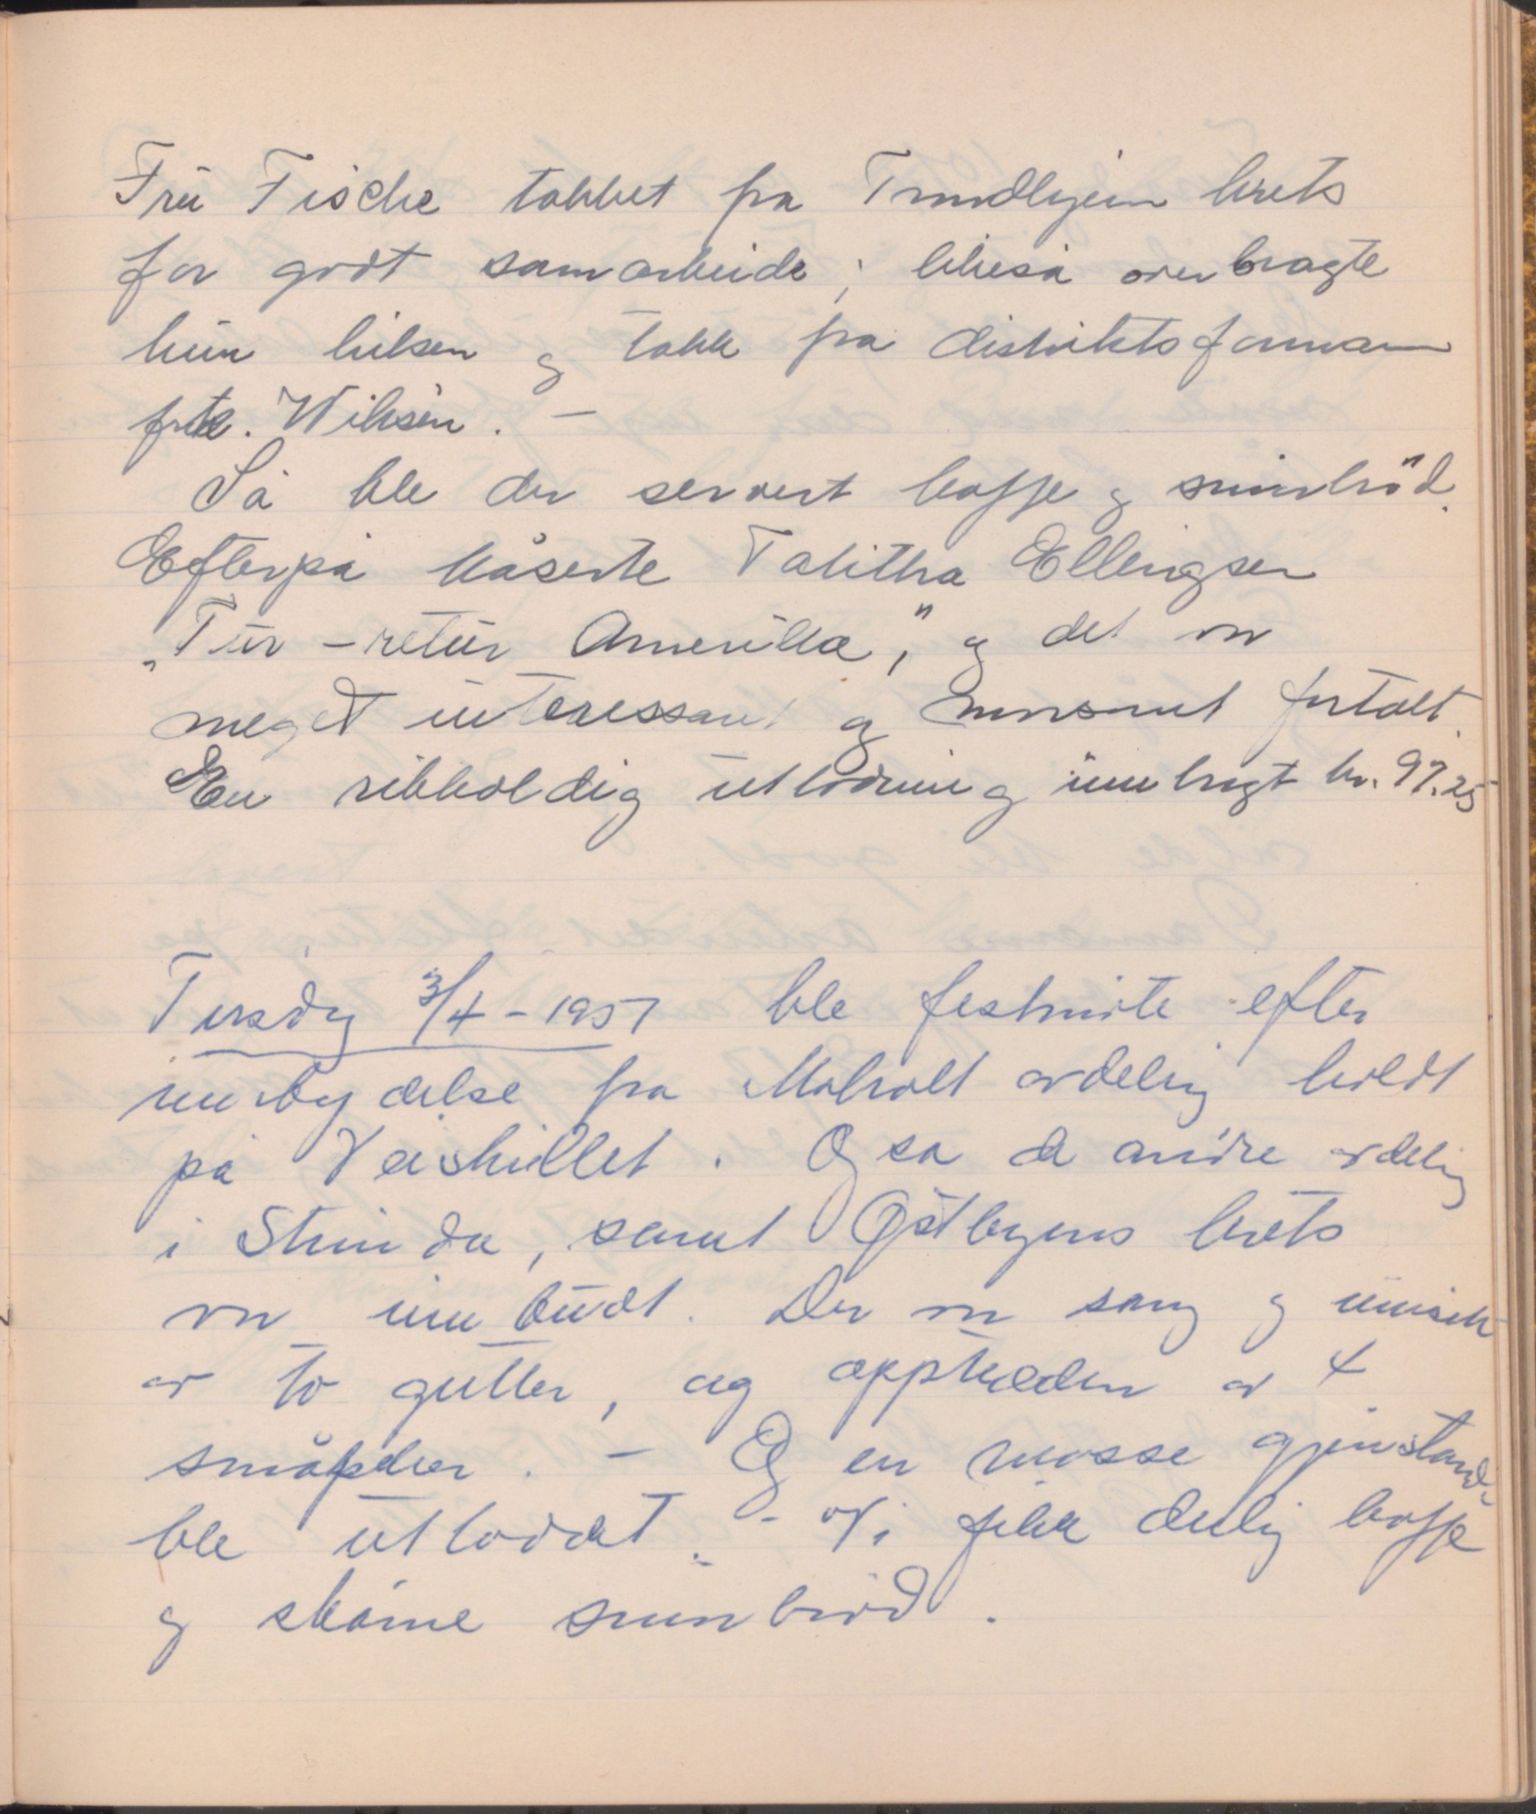 Fru Fische takket fra Trondhjem krets
for godt samarbeide; likeså overbragte
hun hilsen og takk fra distriktsformann
frk. Wiksén. –
Så ble der servert kaffe og smørbrød.
Efterpå kåserte Talitha Ellingsen
„Tur-retur Amerika," og det var
meget interessant og morsomt fortalt.
En rikholdig utlodning innbragt kr. 97.25
Tirsdag 3/4 - 1957 ble festmøte efter
innbydelse fra Moholt avdeling holdt
på Veiskillet. Også de andre avdeling
i Strinda, samt Østbyens krets
var innbudt. Der var sang og musikk
av to gutter, og opptreden av 4
småpiker. – Og en masse gjenstand.
ble utloddet. - Vi fikk deilig kaffe
og skåme smørbrød.